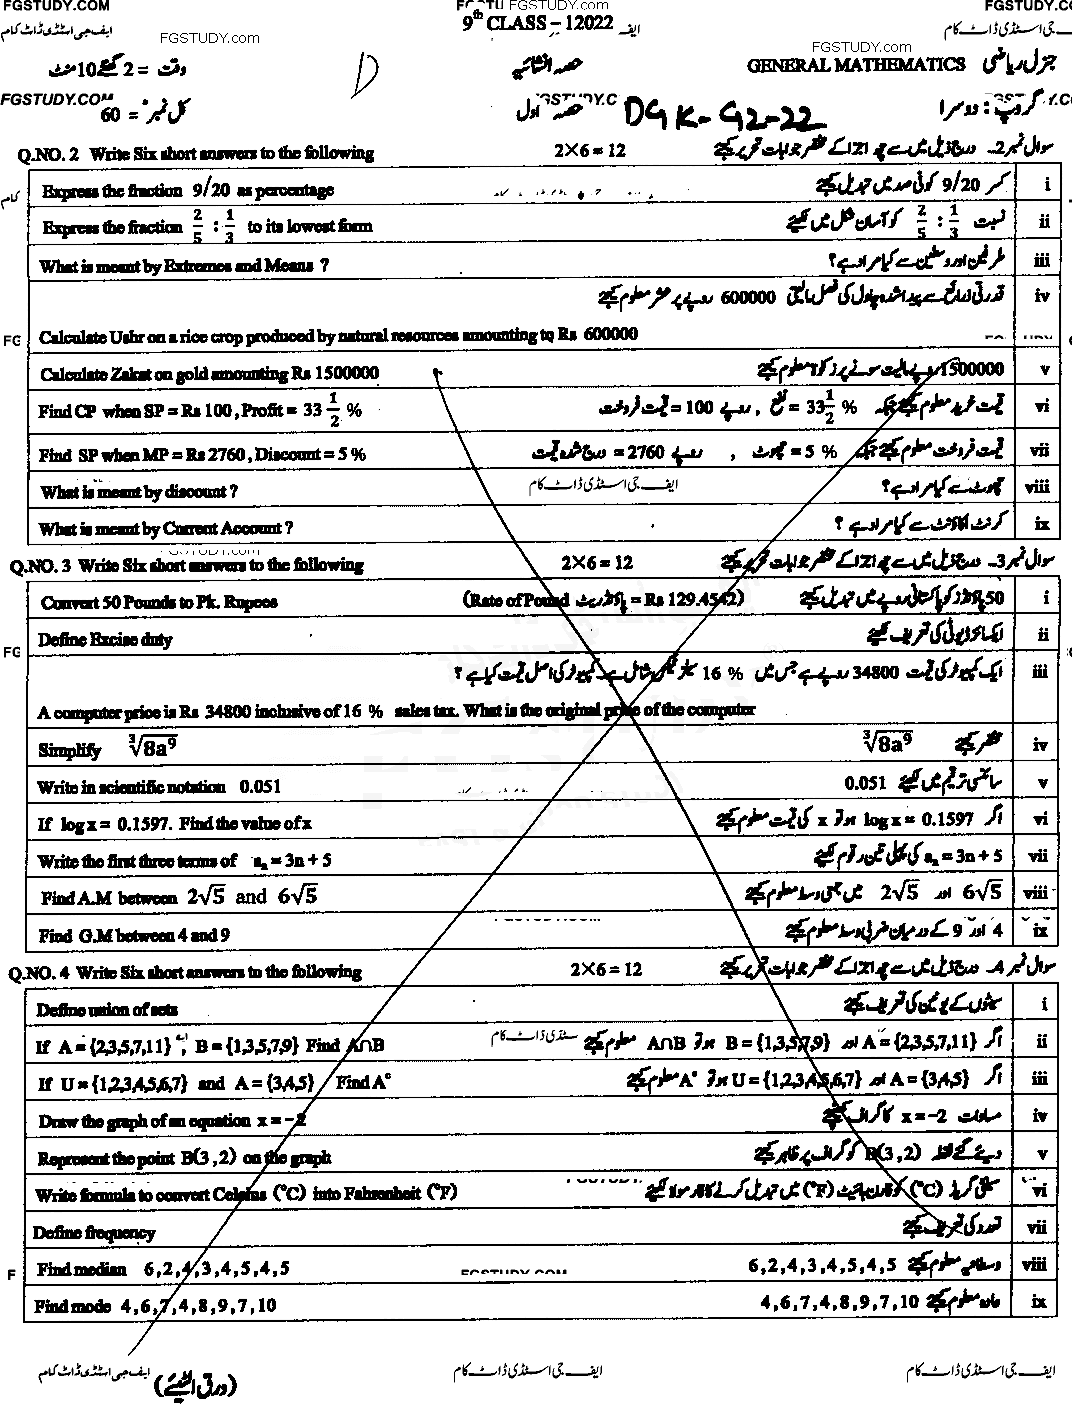 FGSTUDY.COM FGSTUDY.com FGSTUDY.CO
9th CLASS – 12022 ایف
ایف جی اسٹڈی ڈاٹ کام FGSTUDY.com جی اسٹڈی ڈاٹ کام
FGSTUDY.com
وقت = 2 گھنٹے 10 منٹ D حصہ انشائیہ GENERAL MATHEMATICS جنرل ریاضی
FGSTUDY.COM
کل نمبر = 60 حصہ اول DGK-G2-22 گروپ : دوسرا
Q.NO. 2 Write Six short answers to the following 2×6=12 سوال نمبر 2۔ درج ذیل میں سے چھ اجزا کے مختصر جوابات تحریر کیجئے
Express the fraction 9/20 as percentage کسر 9/20 کو فی صد میں تبدیل کیجئے i
Express the fraction 2/5 : 1/3 to its lowest form نسبت 2/5 : 1/3 کو آسان شکل میں لکھئے ii
What is meant by Extremes and Means ? طرفین اور وسطین سے کیا مراد ہے؟ iii
قدرتی ذرائع سے پیدا شدہ چاول کی فصل مالیتی 600000 روپے پر عشر معلوم کیجئے iv
Calculate Ushr on a rice crop produced by natural resources amounting to Rs 600000
Calculate Zakat on gold amounting Rs 1500000 1500000 روپے مالیت سونے پر زکوٰۃ معلوم کیجئے v
Find CP when SP = Rs 100 , Profit = 33 1/2 % قیمت خرید معلوم کیجئے جبکہ 33 1/2 % = نفع , روپے 100 = قیمت فروخت vi
Find SP when MP = Rs 2760 , Discount = 5 % قیمت فروخت معلوم کیجئے جبکہ 5 % = چھوٹ , روپے 2760 = درج شدہ قیمت vii
What is meant by discount ? ایف جی اسٹڈی ڈاٹ کام چھوٹ سے کیا مراد ہے؟ viii
What is meant by Current Account ? کرنٹ اکاؤنٹ سے کیا مراد ہے ؟ ix
FGSTUDY.com
Q.NO. 3 Write Six short answers to the following 2×6=12 سوال نمبر 3۔ درج ذیل میں سے چھ اجزا کے مختصر جوابات تحریر کیجئے
Convert 50 Pounds to Pk. Rupees (Rate of Pound پاؤنڈ ریٹ = Rs 129.4542) 50 پاؤنڈز کو پاکستانی روپے میں تبدیل کیجئے i
Define Excise duty ایکسائز ڈیوٹی کی تعریف لکھئے ii
ایک کمپیوٹر کی قیمت 34800 روپے ہے جس میں 16 % سیلز ٹیکس شامل ہے۔ کمپیوٹر کی اصل قیمت کیا ہے ؟ iii
A computer price is Rs 34800 inclusive of 16 % sales tax. What is the original price of the computer
Simplify ∛8a⁹ ∛8a⁹ مختصر کیجئے iv
Write in scientific notation 0.051 0.051 سائنسی ترقیم میں لکھئے v
If log x = 0.1597. Find the value of x اگر log x = 0.1597 ہو تو x کی قیمت معلوم کیجئے vi
Write the first three terms of aₙ = 3n + 5 aₙ = 3n + 5 کی پہلی تین رقوم لکھئے vii
Find A.M between 2√5 and 6√5 2√5 اور 6√5 میں جمعی وسط معلوم کیجئے viii
Find G.M between 4 and 9 4 اور 9 کے درمیان ضربی وسط معلوم کیجئے ix
Q.NO. 4 Write Six short answers to the following 2×6=12 سوال نمبر 4۔ درج ذیل میں سے چھ اجزا کے مختصر جوابات تحریر کیجئے
Define union of sets سیٹوں کے یونین کی تعریف کیجئے i
If A = {2,3,5,7,11} , B = {1,3,5,7,9} Find A∩B اگر A = {2,3,5,7,11} اور B = {1,3,5,7,9} ہو تو A∩B معلوم کیجئے ii
If U = {1,2,3,4,5,6,7} and A = {3,4,5} Find Aᶜ اگر A = {3,4,5} اور U = {1,2,3,4,5,6,7} ہو تو Aᶜ معلوم کیجئے iii
Draw the graph of an equation x = –2 مساوات x = –2 کا گراف کھینچئے iv
Represent the point B(3 , 2) on the graph دیے گئے نقطہ B(3 , 2) کو گراف پر ظاہر کیجئے v
Write formula to convert Celpius (°C) into Fahrenheit (°F) سینٹی گریڈ (°C) کو فارن ہائیٹ (°F) میں تبدیل کرنے کا فارمولا لکھئے vi
Define frequency تعدد کی تعریف کیجئے vii
Find median 6,2,4,3,4,5,4,5 6,2,4,3,4,5,4,5 وسطانیہ معلوم کیجئے viii
Find mode 4,6,7,4,8,9,7,10 4,6,7,4,8,9,7,10 عادہ معلوم کیجئے ix
ایف جی اسٹڈی ڈاٹ کام ایف جی اسٹڈی ڈاٹ کام ایف جی اسٹڈی ڈاٹ کام
(ورق الٹیئے)